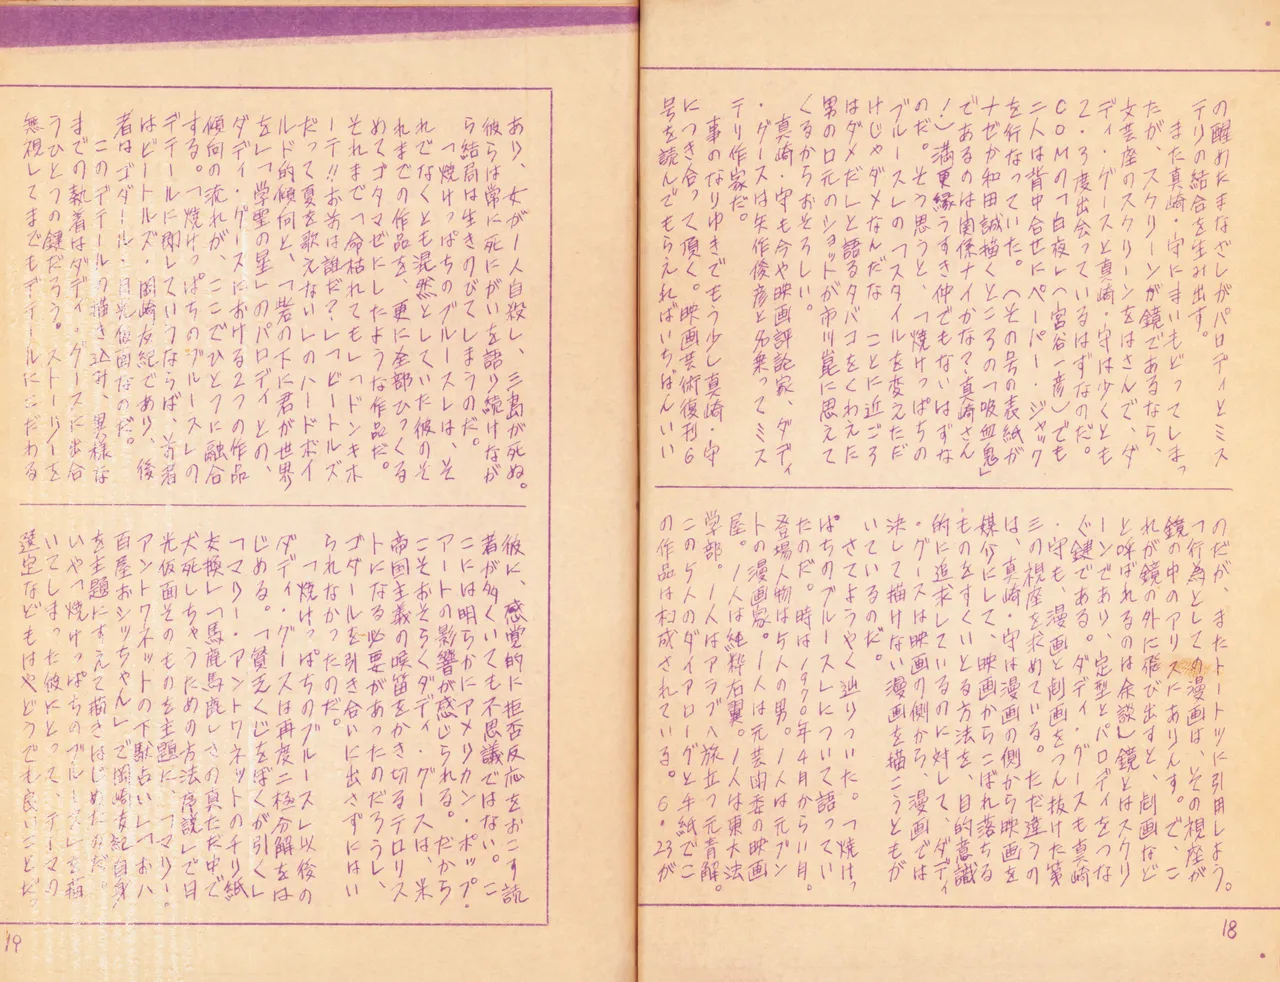 の醒めたまなざしがパロディとミス
テリの結合を生み出す。
また真崎・守にまいもどってしまっ
たが、スクリーンが鏡であるなら、
女芸座のスクリーンをはさんで、ダ
ディ・グースと真崎・守は少くとも
2・3度出会っているはずなのだ。
COMの「白夜」(宮谷一彦)でも
二人は背中合せにペーパー・ジャック
を行なっていた。(その号の表紙が
ナゼか和田誠描くところの「吸血鬼」
であるのは関係ナイかな?真崎さん
!)満更縁うすき仲でもないはずな
のだ。そう思うと、「焼けっぱちの
ブルース」の「スタイルを変えただ
けじゃダメなんだな ことに近ごろ
はダメだ」と語るタバコをくわえた
男の口元のショットが市川崑に思えて
くるからおそろしい。
真崎・守も今や映画評論家、ダディ
・グースは矢作俊彦と名乗ってミス
テリ作家だ。
事のなりゆきでもう少し真崎・守
につき合って頂く。映画芸術復刊6
号を読んでもらえればいちばんいい
のだが、またトートツに引用しよう。
「行為としての漫画は、その視座が
鏡の中のアリスにありんす。で、こ
れが鏡の外に飛び出すと、劇画など
と呼ばれるのは余談」鏡とはスクリ
ーンであり、定型とパロディをつな
ぐ鍵である。ダディ・グースも真崎
・守も、漫画と劇画をつん抜けた第
三の視座を求めている。ただ違うの
は、真崎・守は漫画の側から映画を
媒介にして、映画からこぼれ落ちる
ものをすくいとる方法を、目的意識
的に追求しているのに対して、ダディ
・グースは映画の側から、漫画では
決して描けない漫画を描こうともが
いているのだ。
さてようやく辿りついた。「焼けっ
ぱちのブルース」について語ってい
たのだ。時は1970年4月から11月。
登場人物は5人の男。1人は元ブン
トの漫画家。1人は元芸闘委の映画
屋。1人は純粋右翼。1人は東大法
学部。1人はアラブへ旅立つ元青解。
この5人のダイアローグと手紙でこ
の作品は構成されている。6・23が
あり、女が1人自殺し、三島が死ぬ。
彼らは常に死にがいを語り続けなが
ら結局は生きのびてしまうのだ。
「焼けっぱちのブルース」は、そ
れでなくとも混然としていた彼のそ
れまでの作品を、更に全部ひっくる
めてゴタマゼにしたような作品だ。
それまで「命枯れても」「ドンキホ
ーテ!!お前は誰だ?」「ビートルズ
だって夏を歌えない」のハードボイ
ルド的傾向と、「砦の下に君が世界
を」「学聖の星」のパロディとの、
ダディ・グースにおける2つの作品
傾向の流れが、ここでひとつに融合
する。「焼けっぱちのブルース」の
デテールに即していうならば、前者
はビートルズ・岡崎友紀であり、後
者はゴダール・月光仮面なのだ。
このデテールの描き込み、異様な
までの執着はダディ・グースに出合
うひとつの鍵だろう。ストーリーを
無視してまでもデテールにこだわる
彼に、感覚的に拒否反応をおこす読
者が多くいても不思議ではない。こ
こには明らかにアメリカン・ポップ・
アートの影響が感じられる。だから
こそおそらくダディ・グースは、米
帝国主義の喉笛をかき切るテロリス
トになる必要があったのだろうし、
ゴダールを引き合いに出さずにはい
られなかったのだ。
「焼けっぱちのブルース」以後の
ダディ・グースは再度二極分解をは
じめる。「貧乏くじをぼくが引く」
「マリー・アントワネットのチリ紙
交換」「馬鹿馬鹿しさの真ただ中で
犬死しちゃうための方法序説」で月
光仮面そのものを主題に、「マリー・
アントワネットの下駄占い」「おハ
百屋おシッちゃん」で岡崎友紀自身
を主題にすえて描きはじめたのだ。
いや「焼けっぱちのブルース」を描
いてしまった彼にとって、テーマの
選定などもはやどうでも良いことだっ
18
19